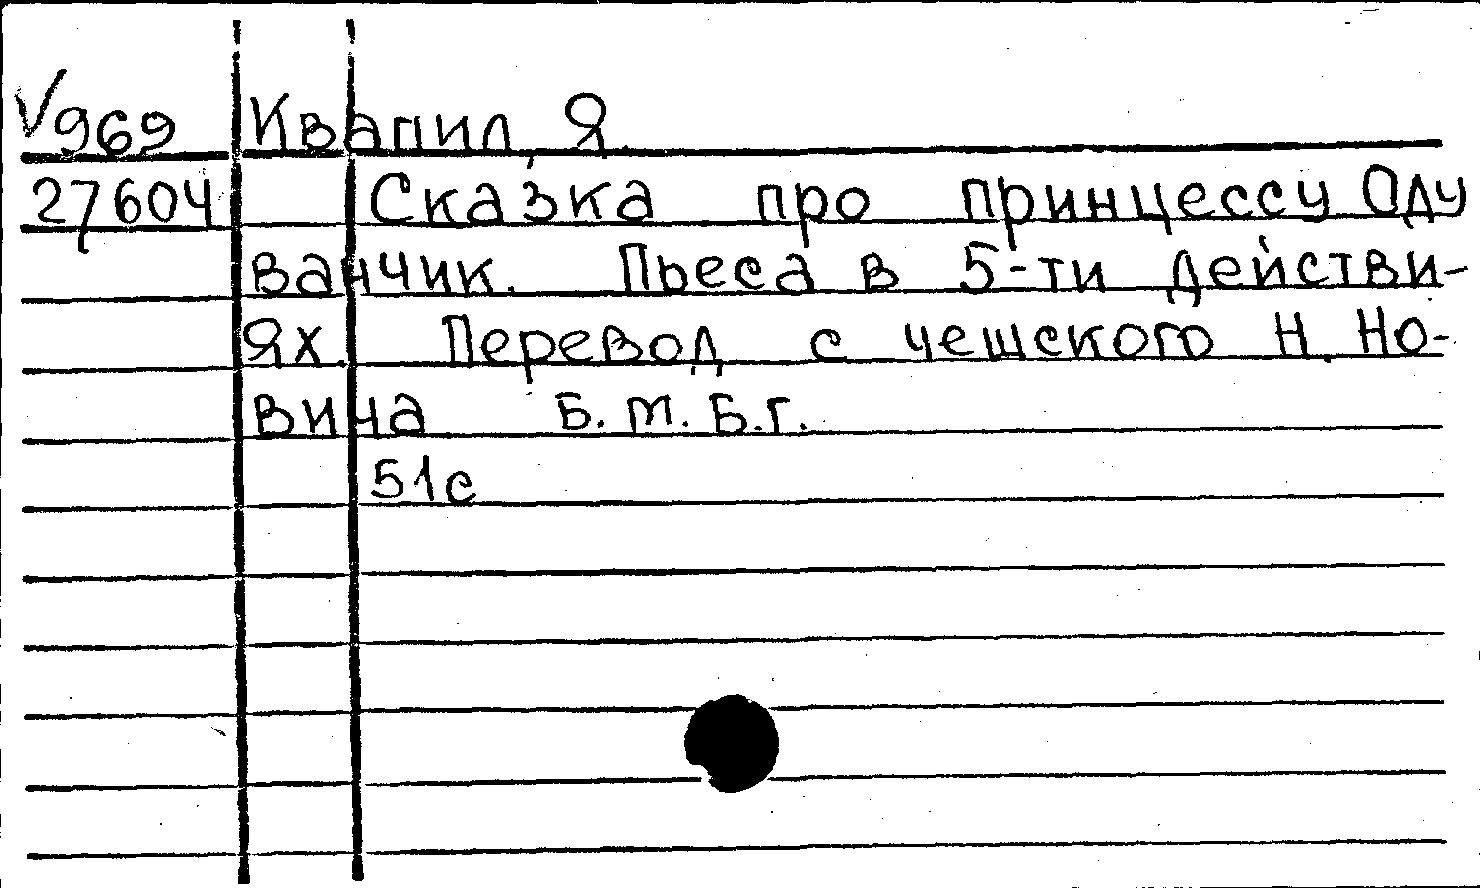 V969 Квапил, Я.
27604 Сказка про принцессу Оду
ванчик. Пьеса в 5-ти действи-
ях. Перевод с чешского Н. Но-
вина Б.М.Б.г.
51с